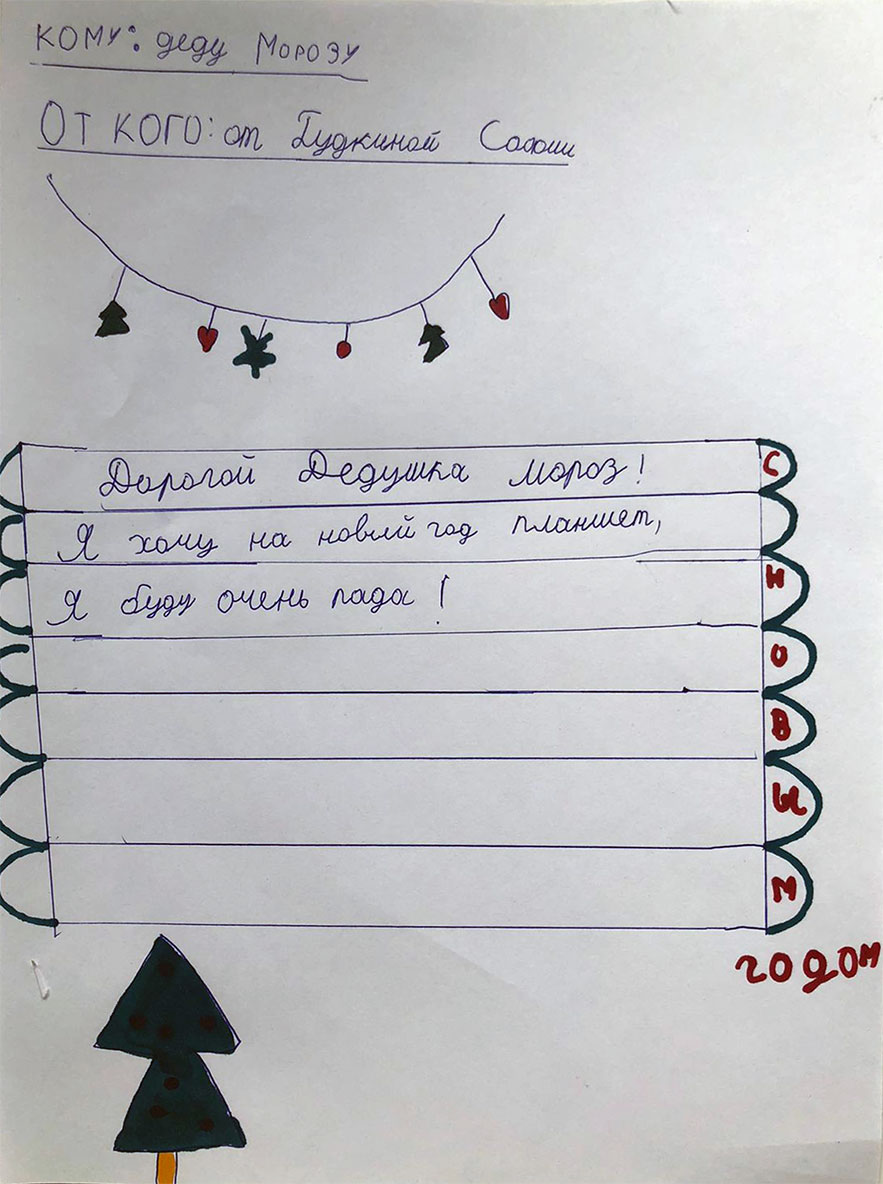 КОМУ: деду Морозу
ОТ КОГО: от Гудкиной Софии
Дорогой Дедушка мороз!
Я хочу на новый год планшет,
Я буду очень рада!
С
Н
О
В
Ы
М
годом